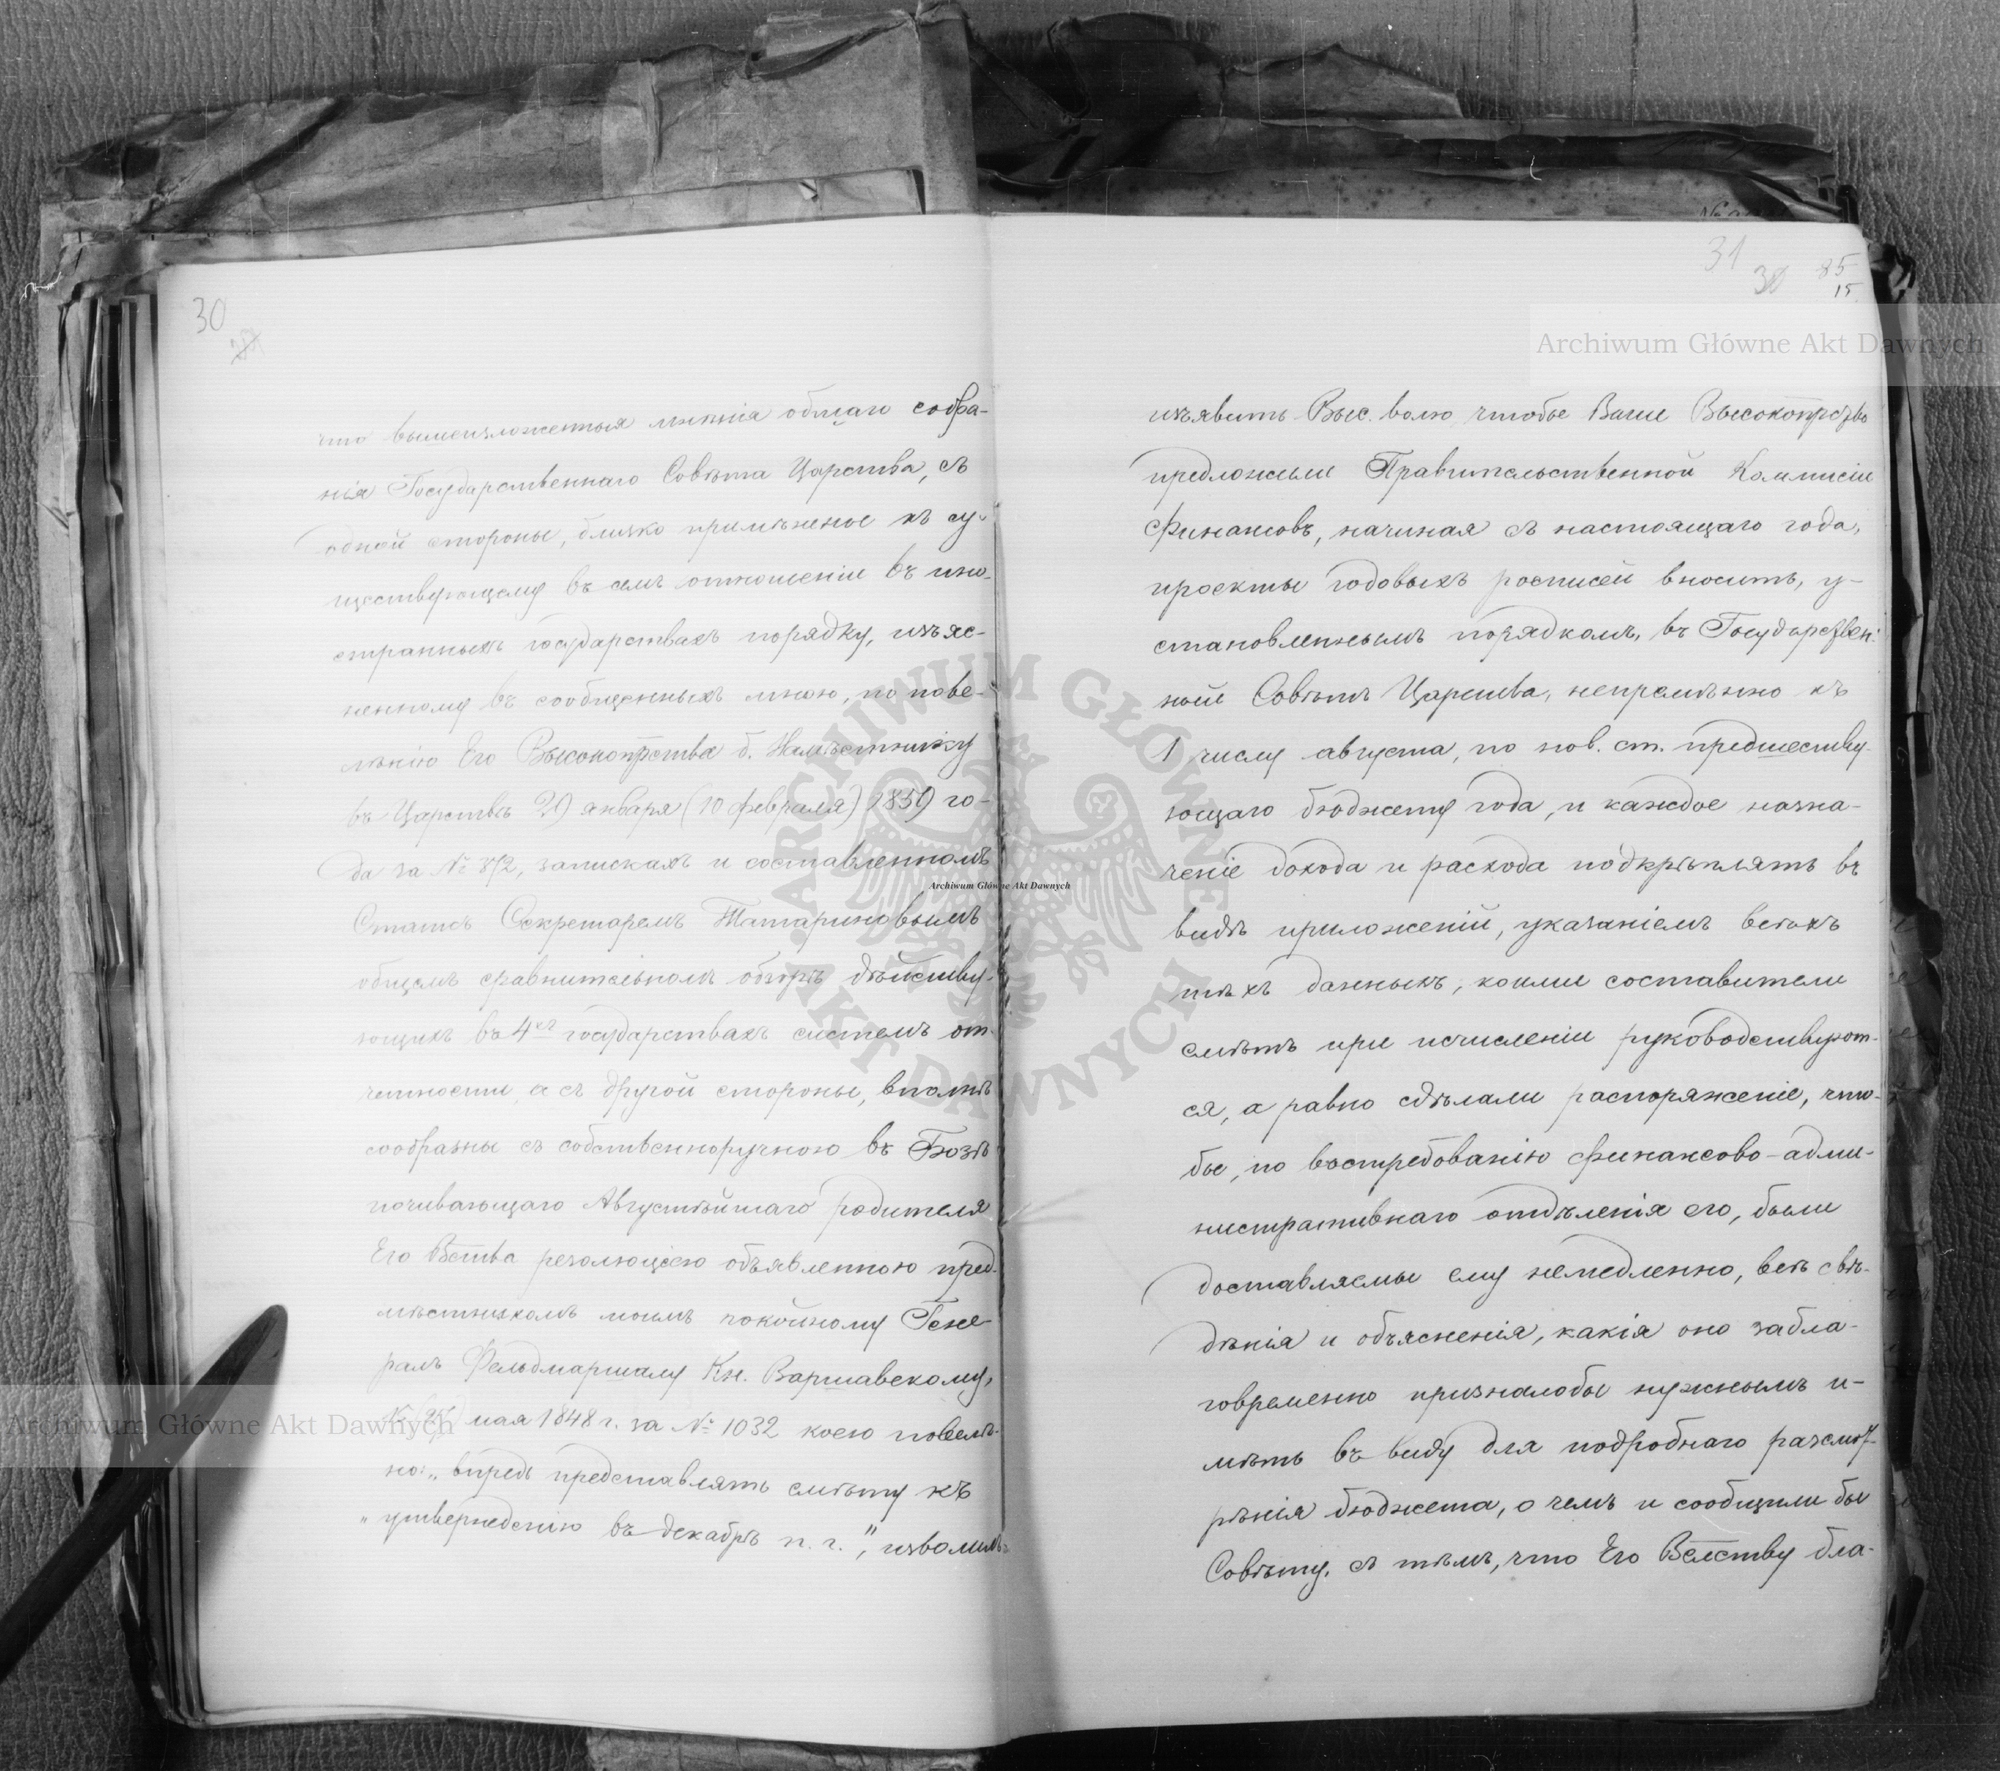 30
что вышеизложенныя мнѣнія общаго собра-
нія Государственнаго Совѣта Царства, съ
одной стороны, близко примѣнены къ су-
ществующему въ семъ отношеніи въ ино-
странныхъ государствахъ порядку, изъяс-
ненному въ сообщенныхъ мною, по пове-
лѣнію Его Высокопрства б. Намѣстнику
въ Царствѣ 29 января (10 февраля) 1859 го-
да за № 872, запискахъ и составленномъ
Статсъ Секретаремъ Татариновымъ
общемъ сравнительномъ обзорѣ дѣйству-
ющихъ въ 4хъ государствахъ системъ от-
четности, а съ другой стороны, вполнѣ
сообразны съ собственноручною въ Бозѣ
почивающаго Августѣйшаго родителя
Его Вства резолюціею объявленною пред-
мѣстникомъ моимъ покойному Гене-
ралъ Фельдмаршалу Кн. Варшавскому,
мая 1848 г. за № 1032 коею повелѣ-
но: „впредь представлять смѣту къ
„утвержденію въ декабрѣ п. г.", изволилъ
31
30
85
15
изъявить Выс. волю, чтобы Ваше Высокопрство
предложили Правительственной Коммисіи
Финансовъ, начиная съ настоящаго года,
проекты годовыхъ росписей вносить, у-
становленнымъ порядкомъ, въ Государствен-
ный Совѣтъ Царства, непремѣнно къ
1 числу августа, по нов. ст. предшеству-
ющаго бюджету года, и каждое назна-
ченіе дохода и расхода подкрѣплять въ
видѣ приложеній, указаніемъ всѣхъ
тѣхъ данныхъ, коими составители
смѣтъ при исчисленіи руководствуют-
ся, а равно сдѣлали распоряженіе, что-
бы, по востребованію финансово-адми-
нистративнаго отдѣленія его, были
доставляемы ему немедленно, всѣ свѣ-
дѣнія и объясненія, какія оно забла-
говременно признало бы нужнымъ и-
мѣть въ виду для подробнаго разсмот-
рѣнія бюджета, о чемъ и сообщили бы
Совѣту, съ тѣмъ, что Его Велству бла-
Archiwum Główne Akt Dawnych
Archiwum Główne Akt Dawnych
Archiwum Główne Akt Dawnych
ARCHIWUM GŁÓWNE AKT DAWNYCH